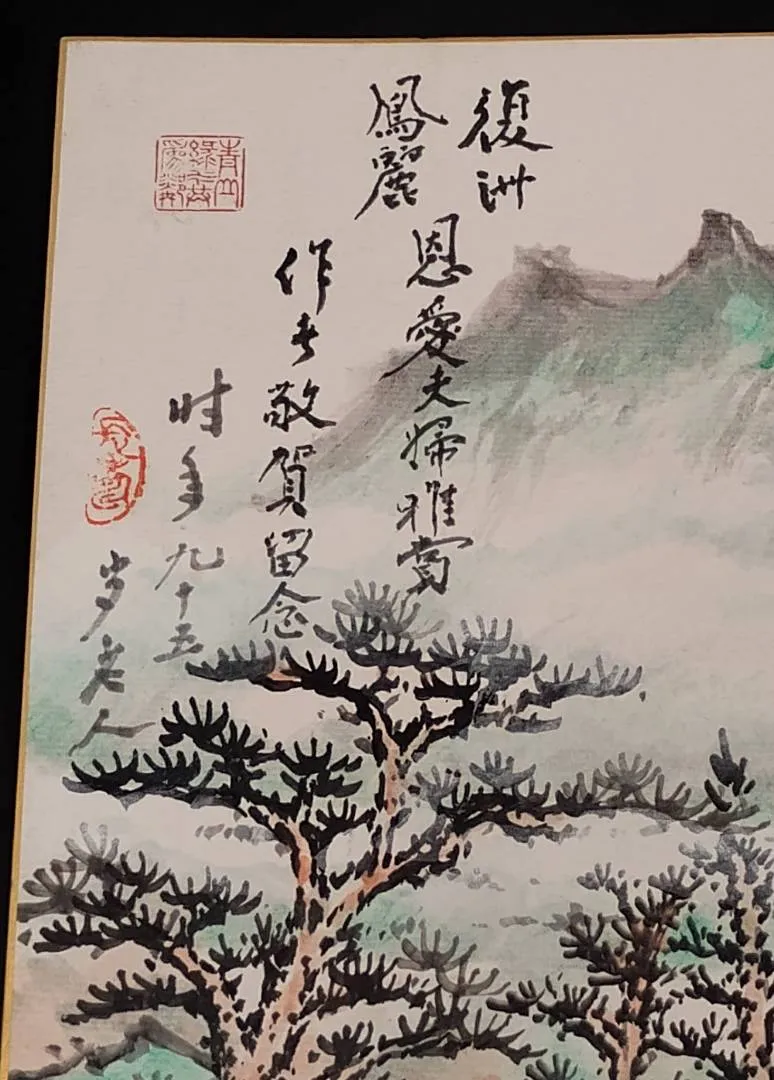 復洲
鳳麗
恩愛夫婦雅賞
作者敬賀留念
时年九十五
岁老人
青山
綠水
為鄰